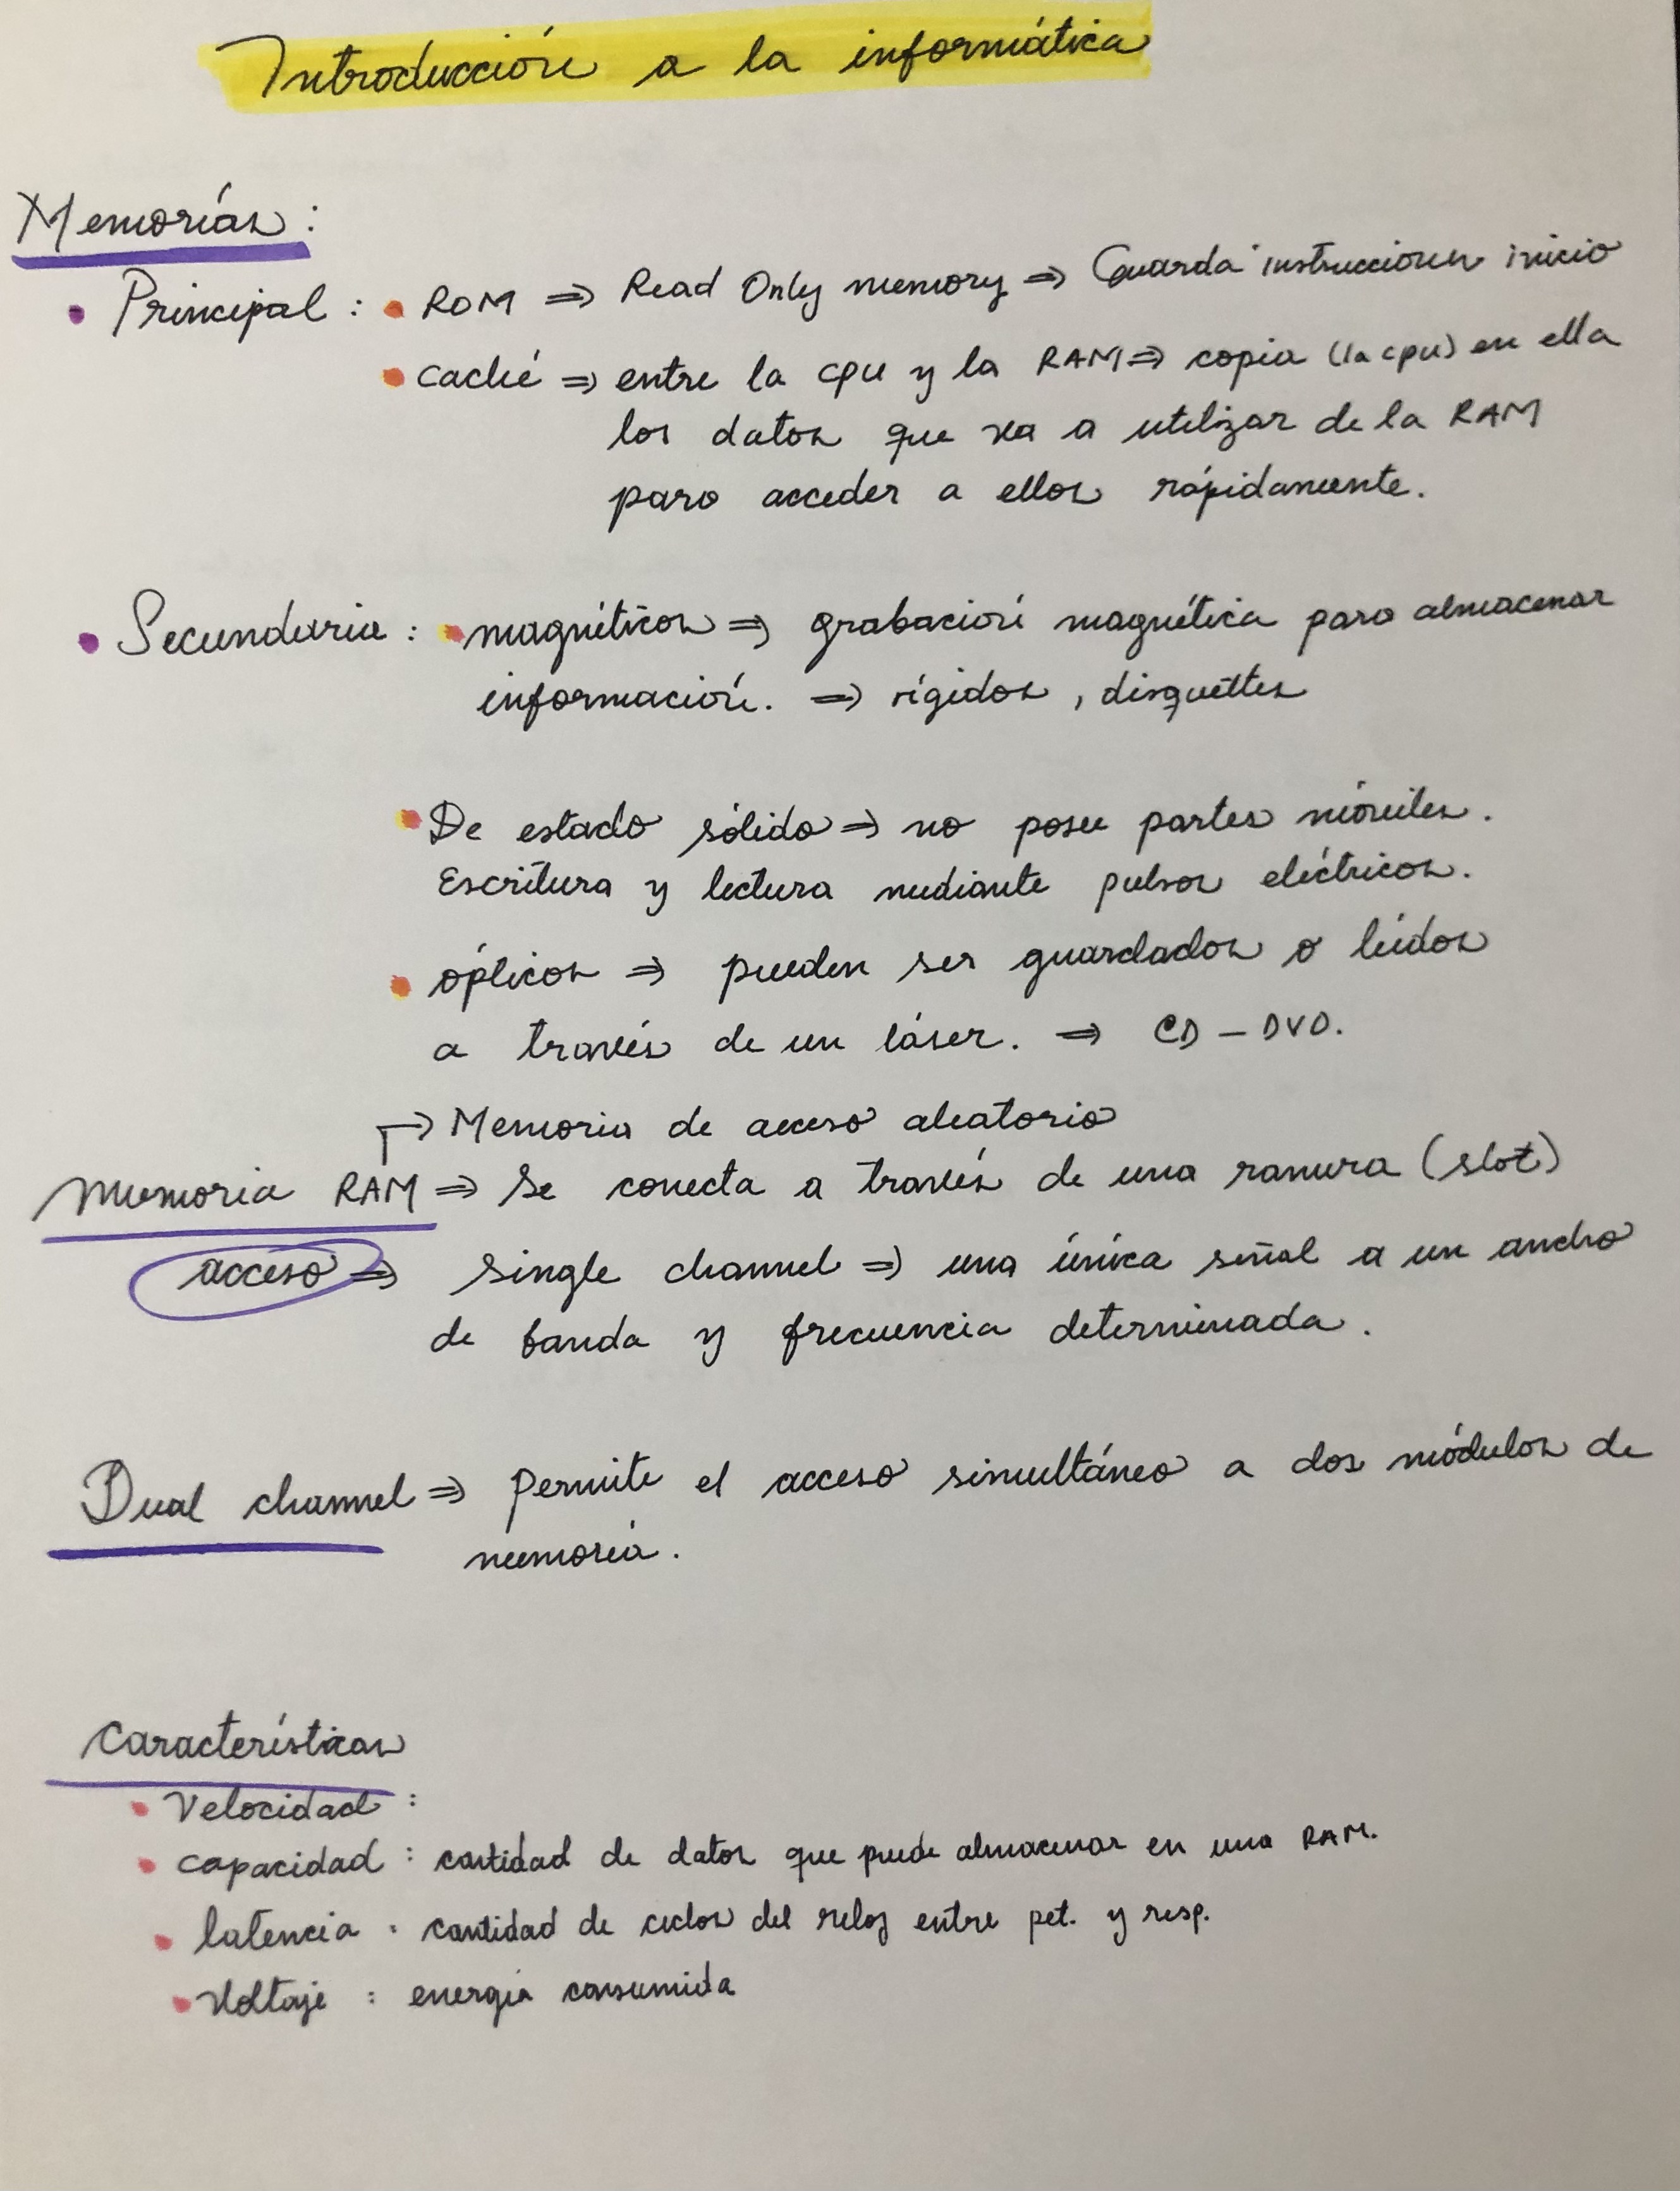 Introducción a la informática
Memorias:
• Principal: • ROM => Read Only memory => Guarda instrucciones inicio
• caché => entre la cpu y la RAM => copia (la cpu) en ella
los datos que va a utilizar de la RAM
para acceder a ellos rápidamente.
• Secundaria: • magnéticos => grabación magnética para almacenar
información. => rígidos, disquettes
• De estado sólido => no posee partes móviles.
Escritura y lectura mediante pulsos eléctricos.
• ópticos => pueden ser guardados o leídos
a través de un láser. => CD - DVD.
→ Memoria de acceso aleatorio
Memoria RAM => Se conecta a través de una ranura (slot)
acceso => single channel => una única señal a un ancho
de banda y frecuencia determinada.
Dual channel => Permite el acceso simultáneo a dos módulos de
memoria.
Características
• Velocidad:
• capacidad: cantidad de datos que puede almacenar en una RAM.
• latencia: cantidad de ciclos del reloj entre pet. y resp.
• Voltaje: energía consumida